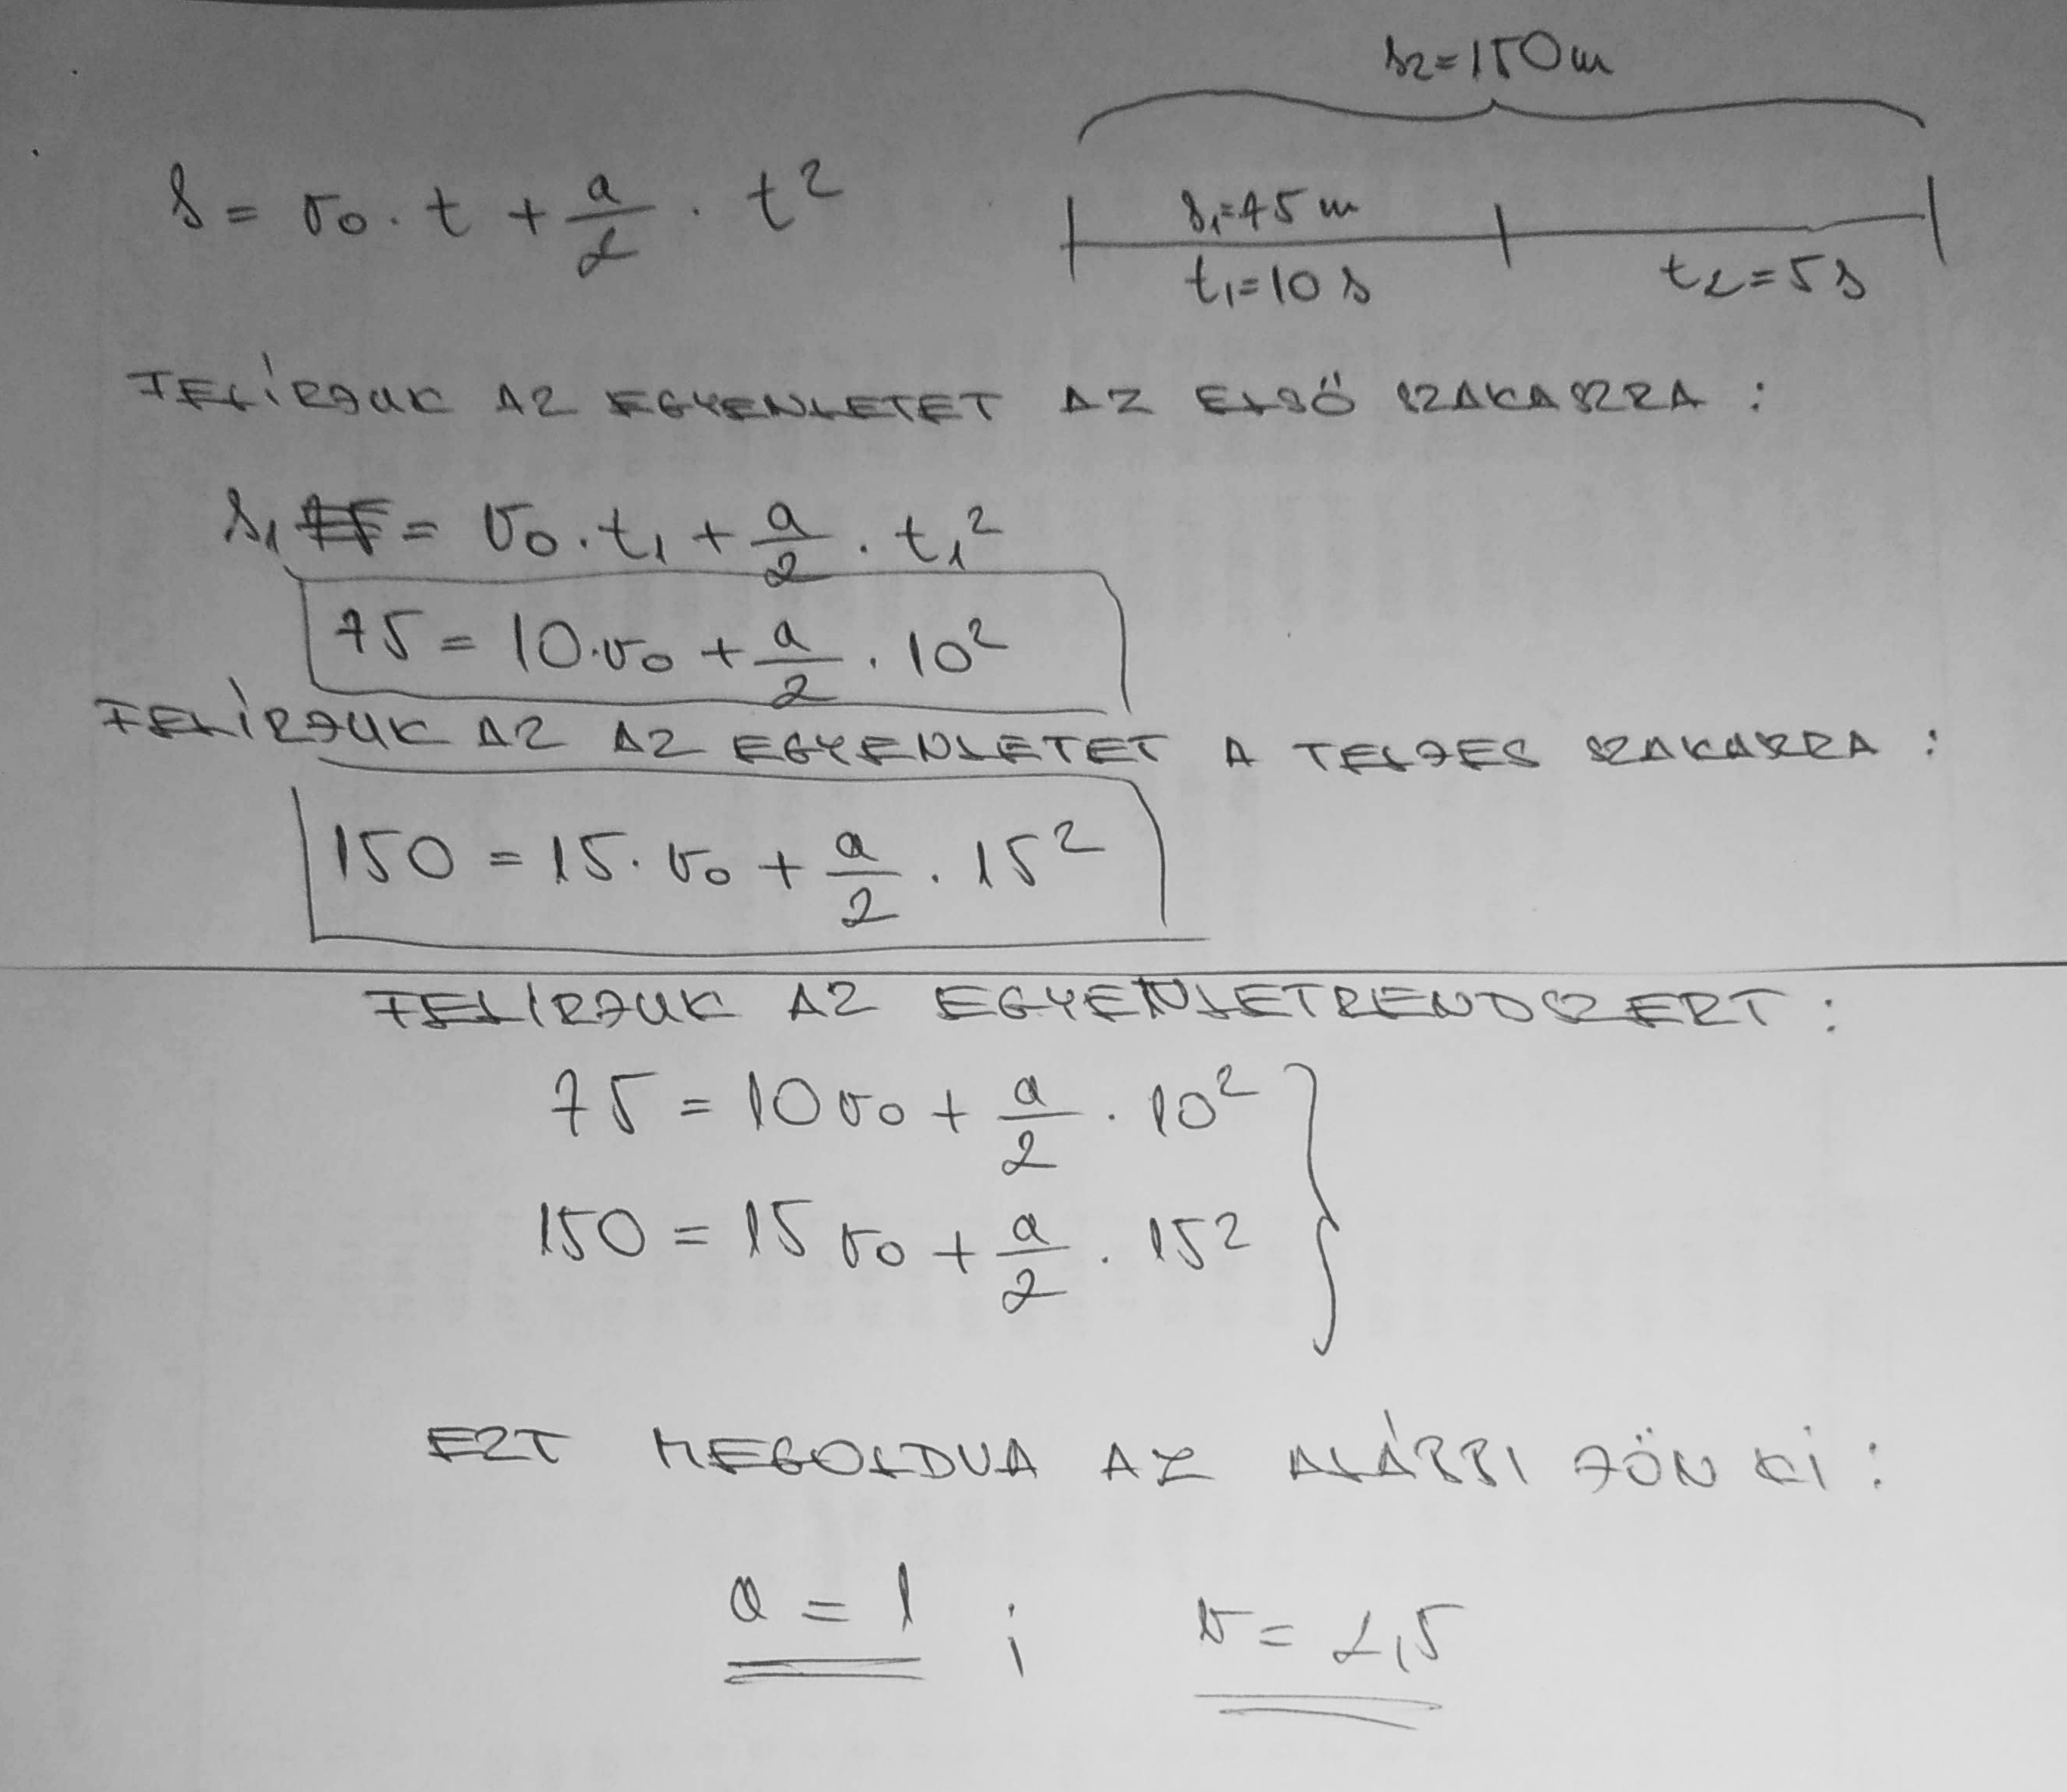 s₂=150m
s = v₀ · t + a/2 · t²
s₁=75 m
t₁=10 s
t₂=5s
FELÍRJUK AZ EGYENLETET AZ ELSŐ SZAKASZRA :
s₁ = v₀ · t₁ + a/2 · t₁²
75 = 10 · v₀ + a/2 · 10²
FELÍRJUK AZ AZ EGYENLETET A TELJES SZAKASZRA :
150 = 15 · v₀ + a/2 · 15²
FELIRJUK AZ EGYENLETRENDSZERT :
75 = 10 v₀ + a/2 · 10²
150 = 15 v₀ + a/2 · 15²
EZT MEGOLDVA AZ ALÁBBI JÖN KI :
a = 1 ; v = 2,5